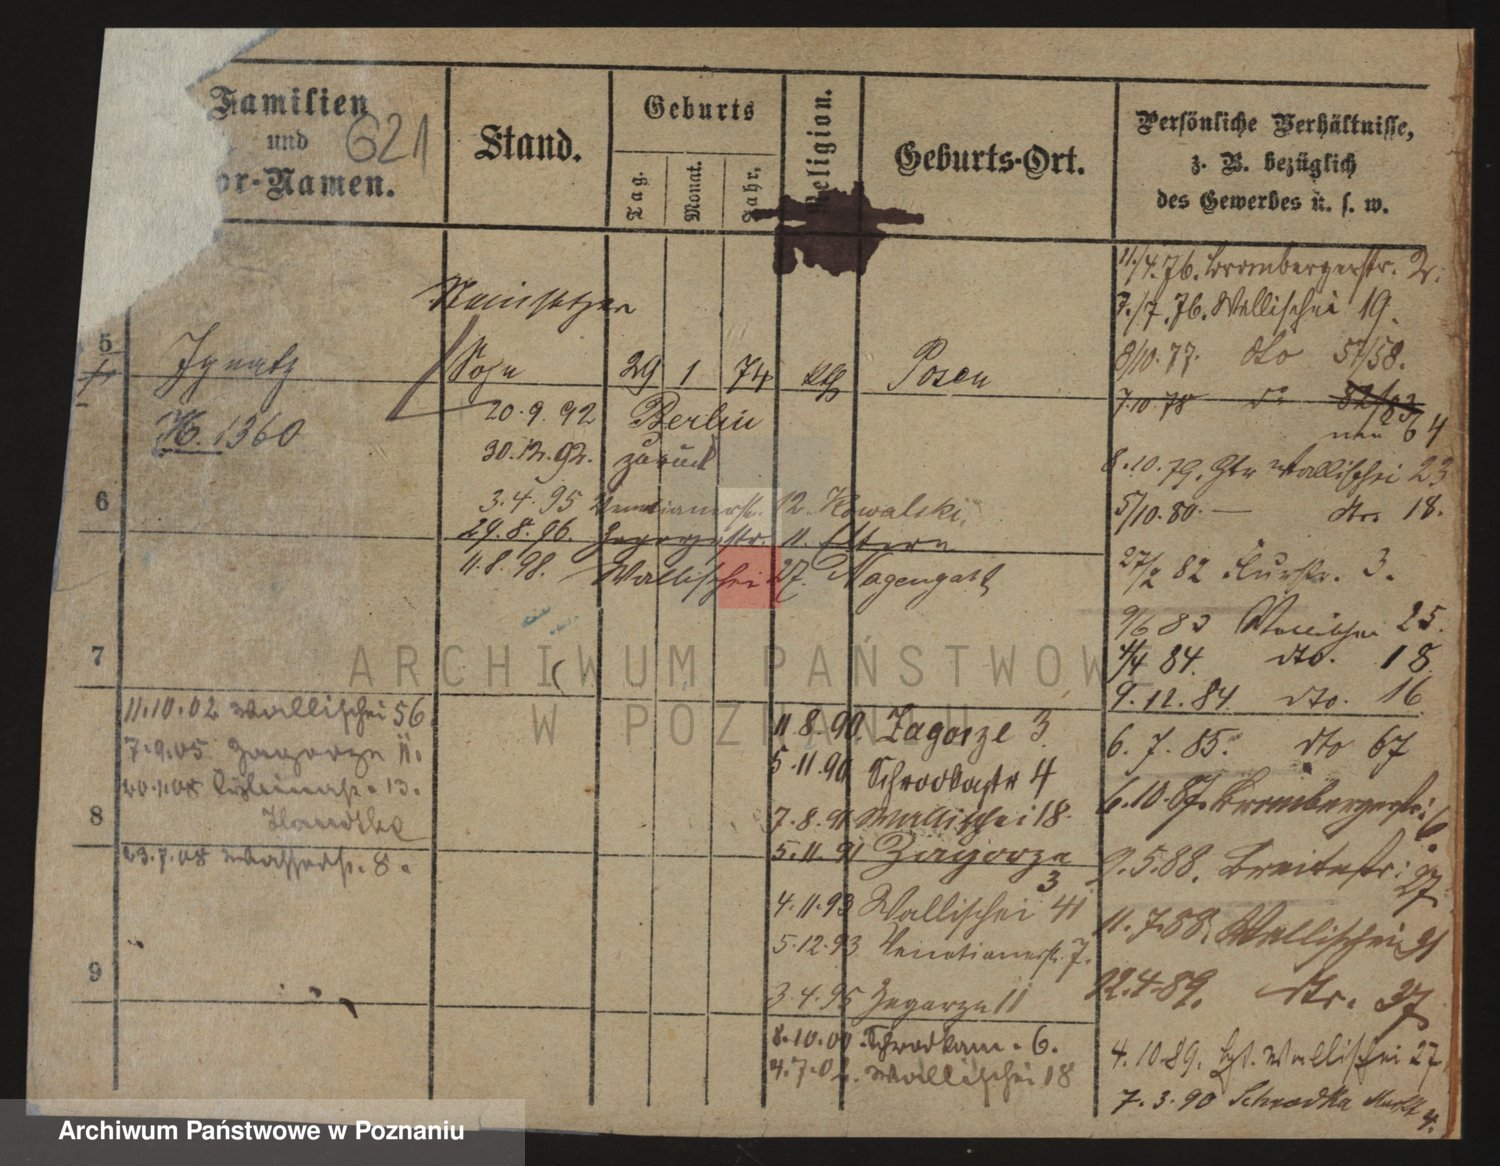 Familien
und 621
or-Namen.
Stand.
Geburts
Tag.
Monat.
Jahr.
Religion.
Geburts-Ort.
Persönliche Verhältnisse,
z. B. bezüglich
des Gewerbes u. s. w.
5
Ignatz
Sohn 29 1 74 kth Posen
H. 1360
20.9.92 Berlin
30.12.92. zurück
3.4.95 Venetianerstr. 12. Kowalski
29.8.96. Zagorzestr. 11. Eltern
11.8.98. Wallischei 27. Nagengast
6
7
8
9
11.10.02 Wallischei 56
7.9.05 Zagorze 11.
20.1.08 13.
23.7.08 Wasserstr. 8.
11.8.90. Zagorze 3
5.11.90 Schrodkastr 4
7.8.91 Wallischei 18.
5.11.91 Zagorze
3
4.11.93 Wallischei 41
5.12.93 Venetianerstr. 7.
3.4.95 Zagorze 11
8.10.00 Schrodkam. 6.
4.7.02. Wallischei 18
11/4.76. Brombergerstr. 2.
7./7.76. Wallischei 19.
8/10.77. dto 57/58.
7.10.78 do 82/83
nun 64
8.10.79. Wallischei 23
5/10.80. — dto. 18.
27/2 82 Flurstr. 3.
9/6 83 Wallischei 25.
4/4 84. dto. 18.
9.12.84 dto. 16
6.7.85. dto 67
6.10.87. Brombergerstr. 6
9.5.88. Breitestr. 27
11.7.88. Wallischei 91
22.4.89. dto. 37
4.10.89. Wallischei 27
7.3.90 Schrodka Markt 4.
ARCHIWUM PAŃSTWOWE
W POZNANIU
Archiwum Państwowe w Poznaniu